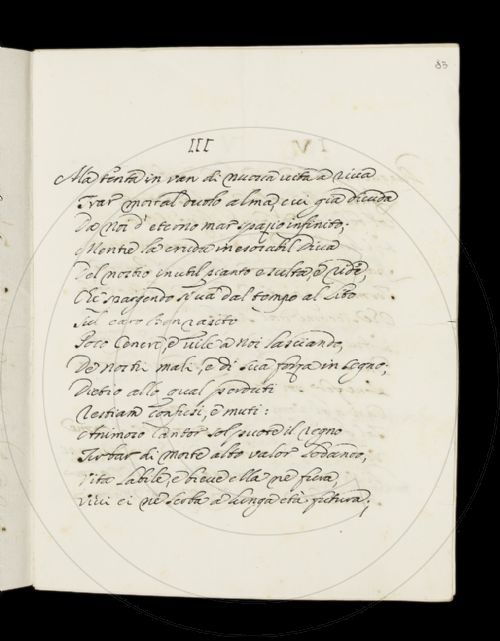 83
III
Ma tenta in van di nuova vita a riva
Trar mortal duolo alma, cui già divida
Da noi d'eterno mar spazio infinito;
Mentre la cruda inesorabil Diva
Del nostro inutil pianto esulta, e ride,
Che spargendo si va dal tempo al lito
Sul caro
Poco cenere, e vile a noi lasciando,
De nostri mali, e di sua forza in segno;
Dietro allo qual perduti
Restiam confusi, e muti:
Animoso Cantor sol puote il regno
Turbar di morte alto valor lodando,
Vita labile, e breve ella ne fura,
Vivi ei ne serba a lunga età futura;